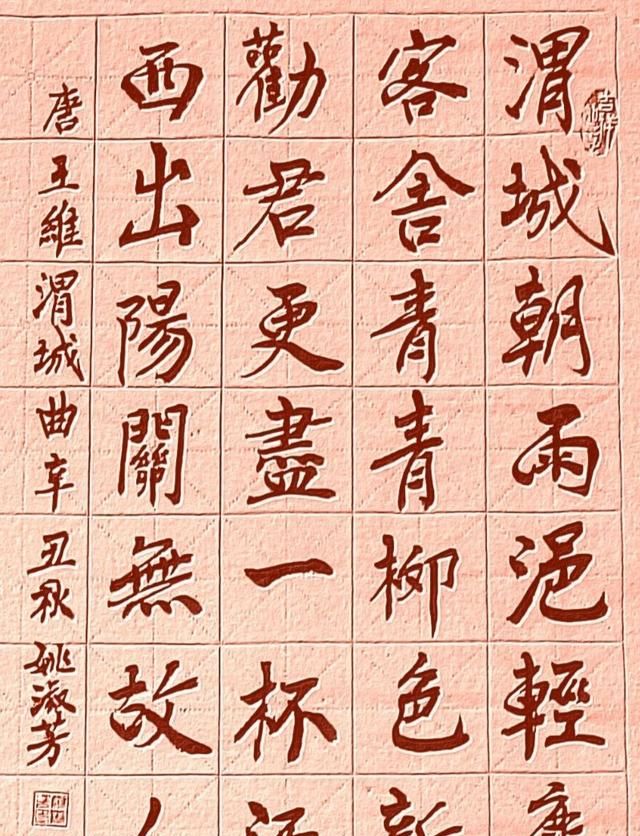 渭城朝雨浥輕
客舍青青柳色新
勸君更盡一杯
西出陽關無故人
唐王維渭城曲辛丑秋姚淑芳